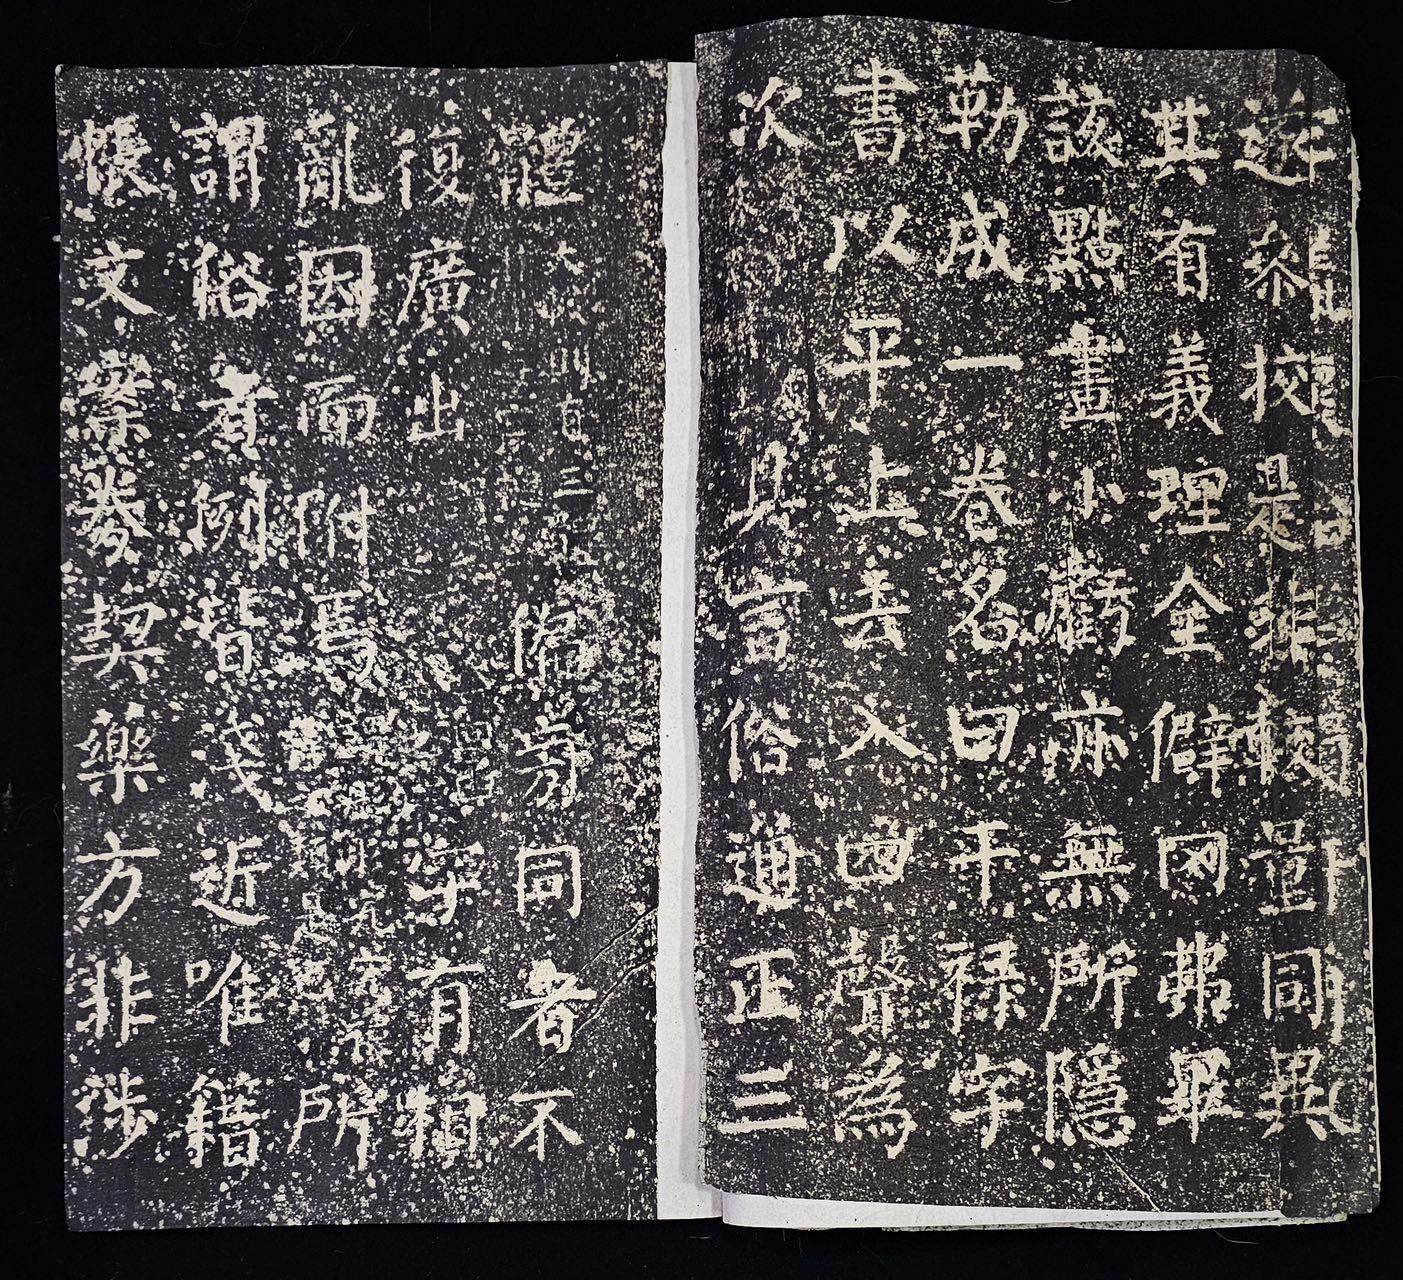 遂叅校是非校量同異
其有義理全僻罔弗畢
該點畫小虧亦無所隱
勒成一卷名曰干禄字
書以平上去入四聲為
次具言俗通正三
體大則三偏旁同者不
復廣出字有相
亂因而附焉所
謂俗者例皆淺近唯籍
帳文案券契藥方非涉